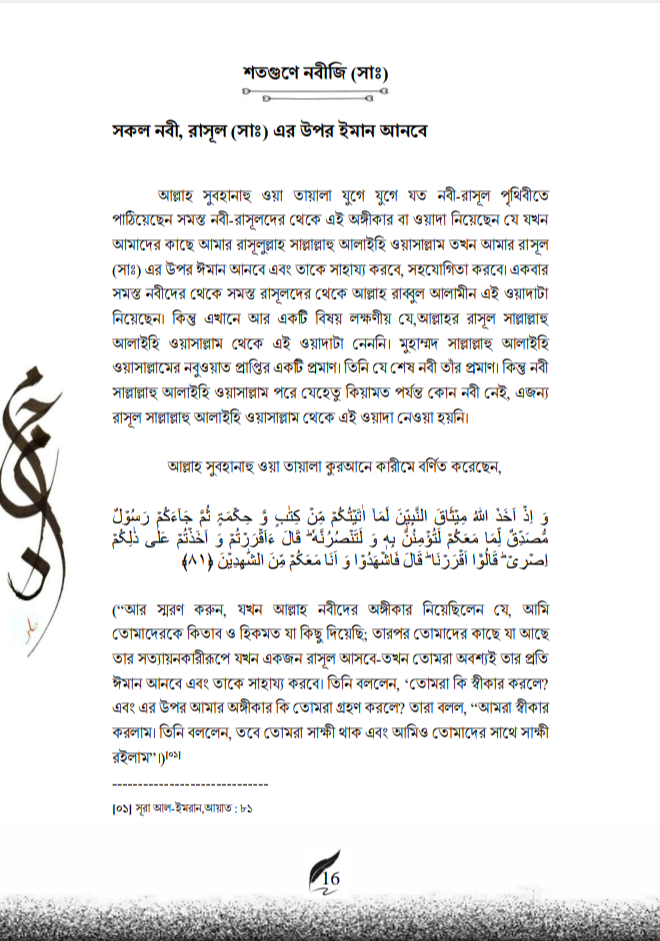 শতগুণে নবীজি (সাঃ)
সকল নবী, রাসূল (সাঃ) এর উপর ইমান আনবে
আল্লাহ সুবহানাহু ওয়া তায়ালা যুগে যুগে যত নবী-রাসূল পৃথিবীতে
পাঠিয়েছেন সমস্ত নবী-রাসূলদের থেকে এই অঙ্গীকার বা ওয়াদা নিয়েছেন যে যখন
আমাদের কাছে আমার রাসূলুল্লাহ সাল্লাল্লাহু আলাইহি ওয়াসাল্লাম তখন আমার রাসূল
(সাঃ) এর উপর ঈমান আনবে এবং তাকে সাহায্য করবে, সহযোগিতা করবে। একবার
সমস্ত নবীদের থেকে সমস্ত রাসূলদের থেকে আল্লাহ রাব্বুল আলামীন এই ওয়াদাটা
নিয়েছেন। কিন্তু এখানে আর একটি বিষয় লক্ষণীয় যে,আল্লাহর রাসূল সাল্লাল্লাহু
আলাইহি ওয়াসাল্লাম থেকে এই ওয়াদাটা নেননি। মুহাম্মদ সাল্লাল্লাহু আলাইহি
ওয়াসাল্লামের নবুওয়াত প্রাপ্তির একটি প্রমাণ। তিনি যে শেষ নবী তাঁর প্রমাণ। কিন্তু নবী
সাল্লাল্লাহু আলাইহি ওয়াসাল্লাম পরে যেহেতু কিয়ামত পর্যন্ত কোন নবী নেই, এজন্য
রাসূল সাল্লাল্লাহু আলাইহি ওয়াসাল্লাম থেকে এই ওয়াদা নেওয়া হয়নি।
আল্লাহ সুবহানাহু ওয়া তায়ালা কুরআনে কারীমে বর্ণিত করেছেন,
وَ اِذۡ اَخَذَ اللّٰهُ مِیۡثَاقَ النَّبِیّٖنَ لَمَاۤ اٰتَیۡتُكُمۡ مِّنۡ كِتٰبٍ وَّ حِكۡمَۃٍ ثُمَّ جَآءَكُمۡ رَسُوۡلٌ
مُّصَدِّقٌ لِّمَا مَعَكُمۡ لَتُؤۡمِنُنَّ بِهٖ وَ لَتَنۡصُرُنَّهٗ ؕ قَالَ ءَاَقۡرَرۡتُمۡ وَ اَخَذۡتُمۡ عَلٰی ذٰلِكُمۡ
اِصۡرِیۡ ؕ قَالُوۡۤا اَقۡرَرۡنَا ؕ قَالَ فَاشۡهَدُوۡا وَ اَنَا مَعَكُمۡ مِّنَ الشّٰهِدِیۡنَ ﴿۸۱﴾
(“আর স্মরণ করুন, যখন আল্লাহ নবীদের অঙ্গীকার নিয়েছিলেন যে, আমি
তোমাদেরকে কিতাব ও হিকমত যা কিছু দিয়েছি; তারপর তোমাদের কাছে যা আছে
তার সত্যায়নকারীরূপে যখন একজন রাসূল আসবে-তখন তোমরা অবশ্যই তার প্রতি
ঈমান আনবে এবং তাকে সাহায্য করবে। তিনি বললেন, ‘তোমরা কি স্বীকার করলে?
এবং এর উপর আমার অঙ্গীকার কি তোমরা গ্রহণ করলে? তারা বলল, “আমরা স্বীকার
করলাম। তিনি বললেন, তবে তোমরা সাক্ষী থাক এবং আমিও তোমাদের সাথে সাক্ষী
রইলাম”।)[০১]
[০১] সূরা আল-ইমরান,আয়াত : ৮১
16